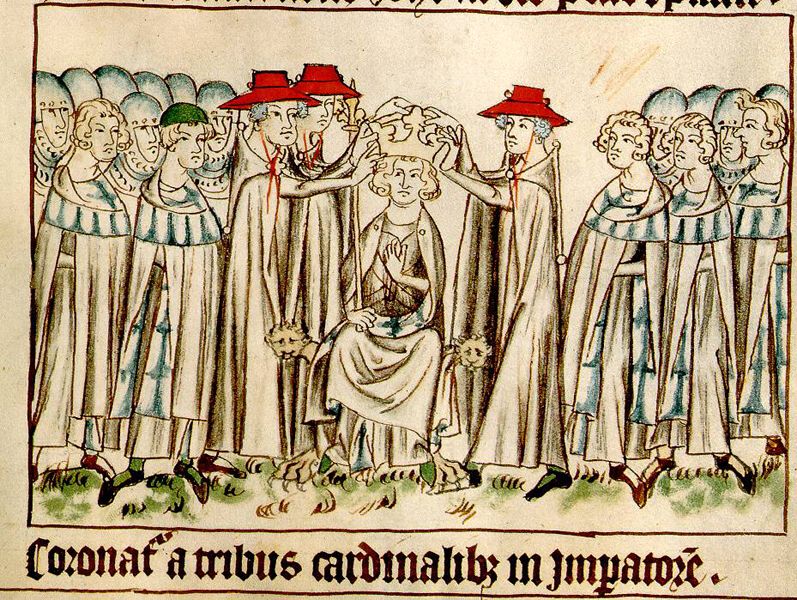 Coronat᷑ a tribus cardinalibꝫ in Imp̱atorē.